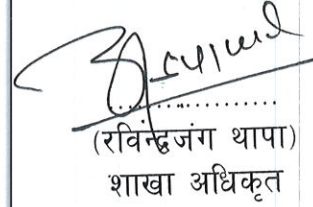 ....................
(रविन्द्रजंग थापा)
शाखा अधिकृत